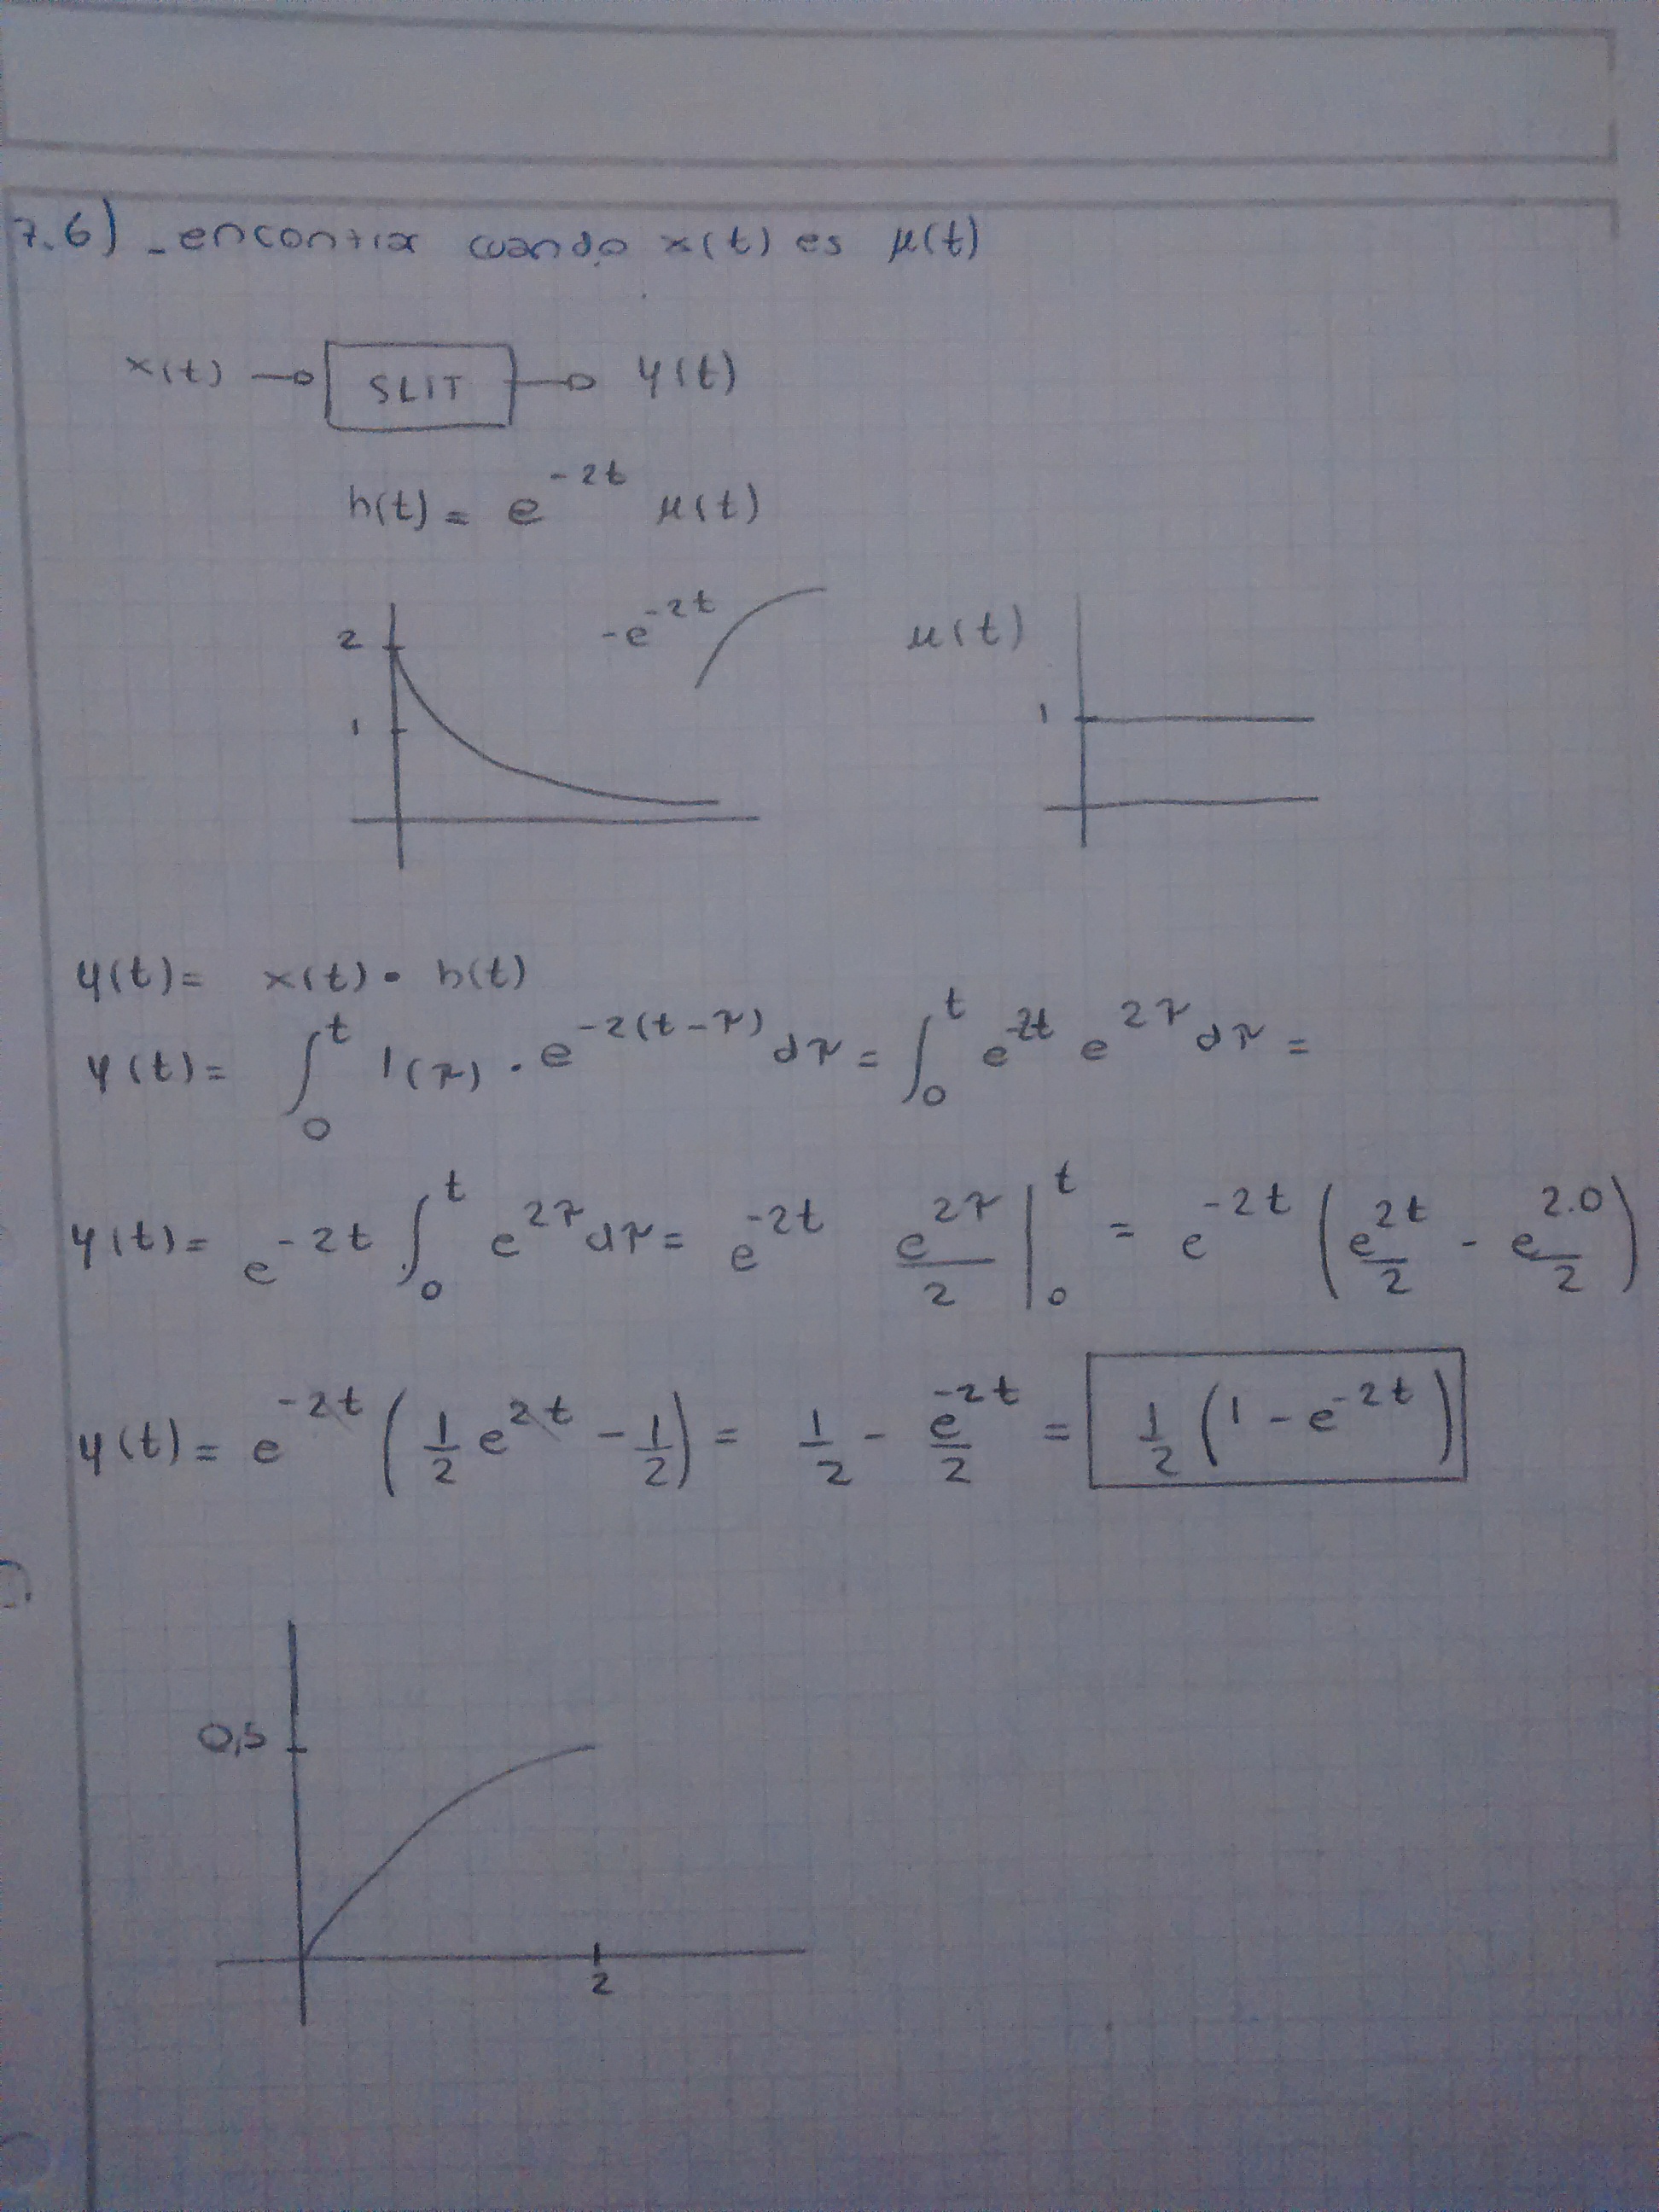 7.6) - encontrar cuando x(t) es μ(t)
x(t) SLIT y(t)
h(t) = e^{-2t} μ(t)
2 -e^{-2t} μ(t)
1 1
y(t) = x(t) • h(t)
y(t) = ∫_0^t 1(τ) · e^{-2(t-τ)} dτ = ∫_0^t e^{-2t} e^{2τ} dτ =
y(t) = e^{-2t} ∫_0^t e^{2τ} dτ = e^{-2t} e^{2τ}/2 |_0^t = e^{-2t} (e^{2t}/2 - e^{2.0}/2)
y(t) = e^{-2t} (1/2 e^{2t} - 1/2) = 1/2 - e^{-2t}/2 = 1/2 (1 - e^{-2t})
0,5
2